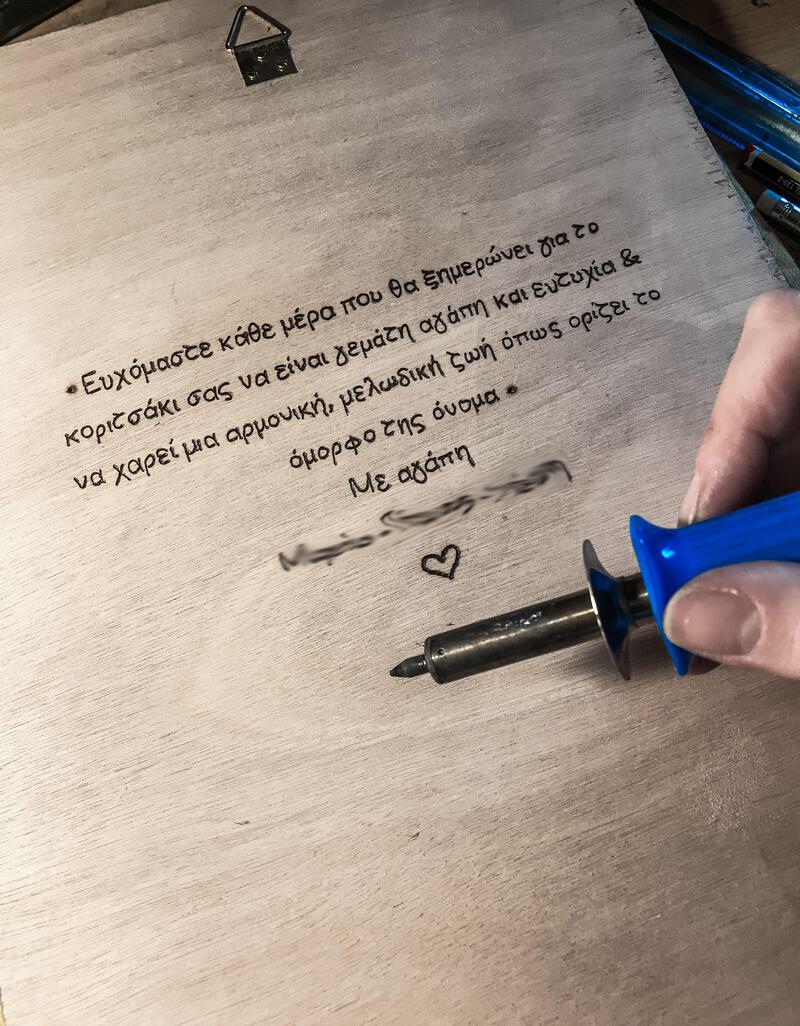 • Ευχόμαστε κάθε μέρα που θα ξημερώνει για το
κοριτσάκι σας να είναι γεμάτη αγάπη και ευτυχία &
να χαρεί μια αρμονική, μελωδική ζωή όπως ορίζει το
όμορφο της όνομα •
Με αγάπη